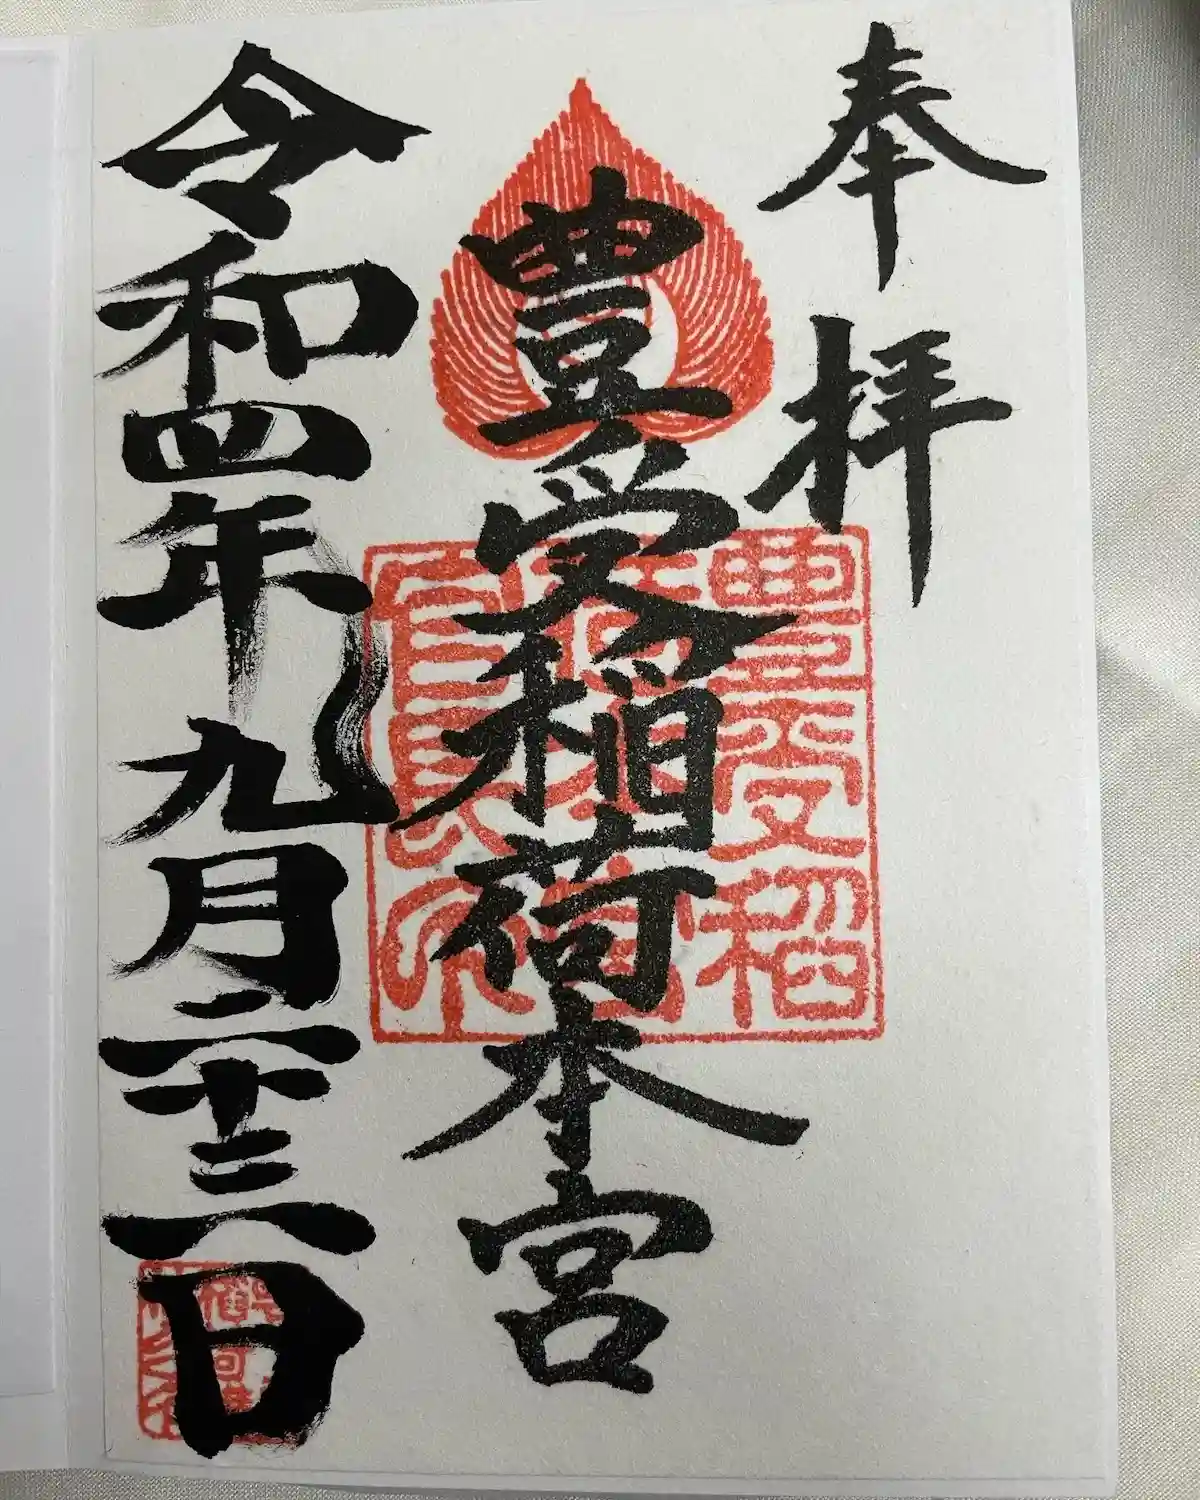 奉拝
豊受稲荷本宮
令和四年九月二十三日
豊受稲